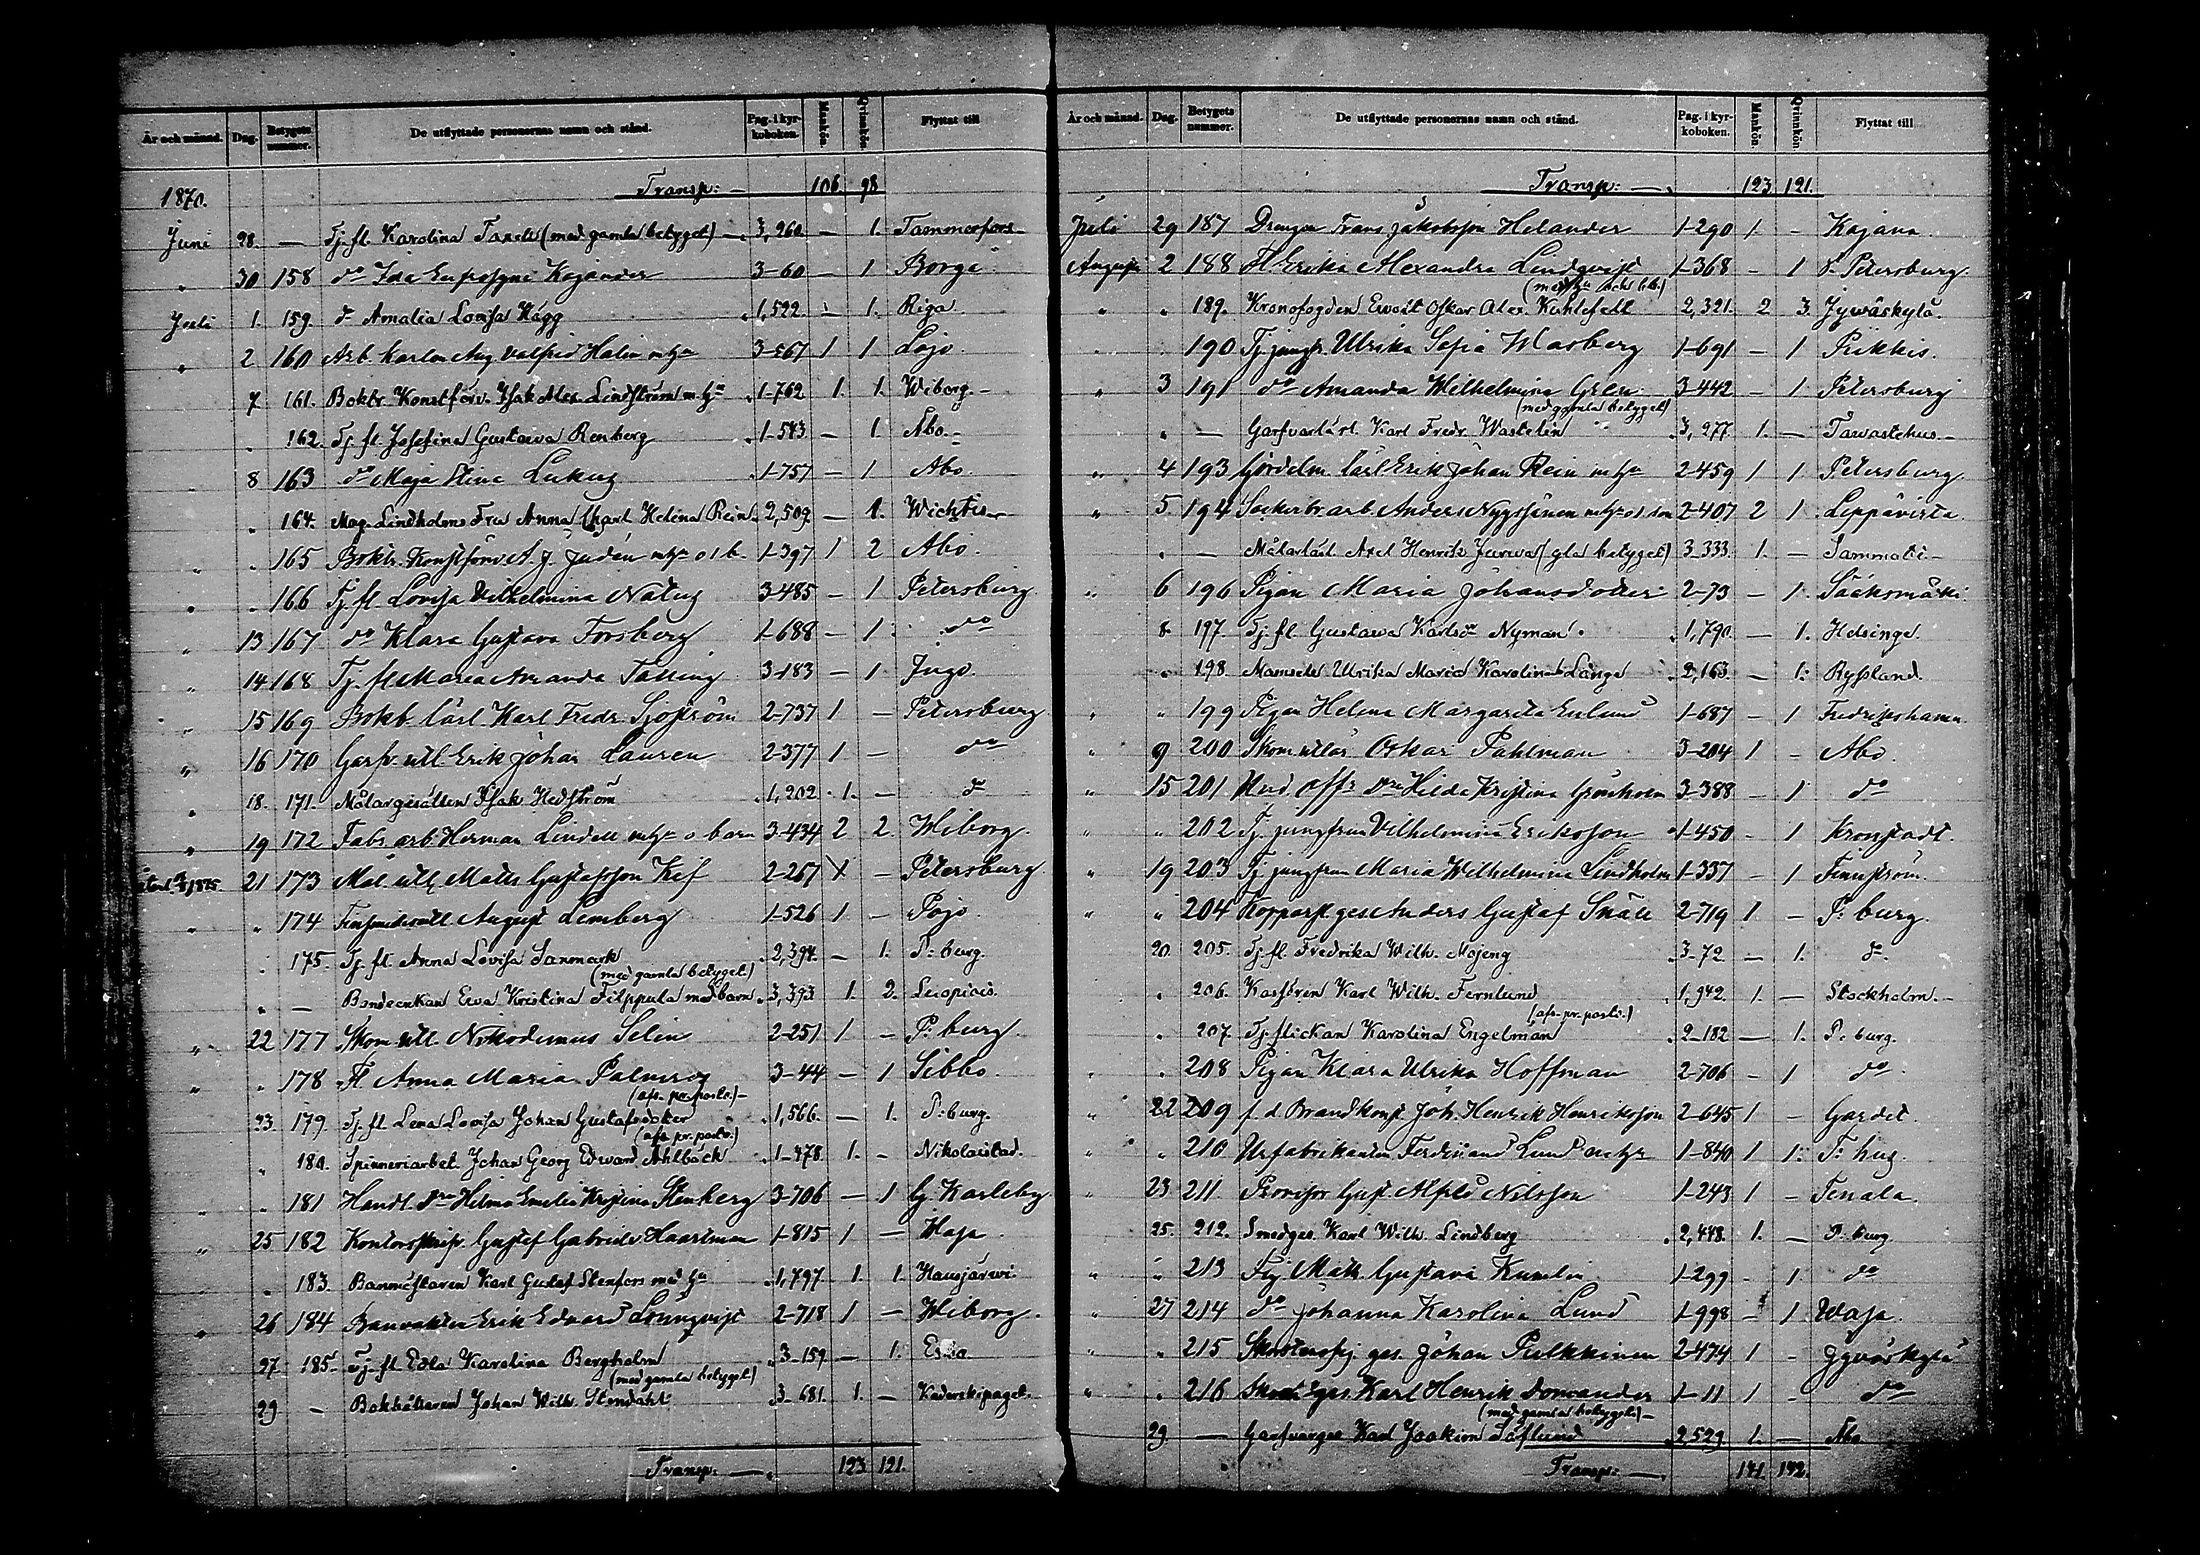 År och månad. Dag. Betygets nummer. De utflyttade personernas namn och stånd. Pag. i kyrkoboken. Mankön. Qvinnkön. Flyttat till
1870. Transp: — 106. 98
Juni 28. — Tj. fl. Karolina (med gamla betyget) — 3,260. — 1. Tammerfors
" 30 158 do Ida Eufrosyne Kajander 3-60 — 1 Borgå
Juli 1. 159. d Amalia Lovisa Hägg 1,522. — 1. Riga.
" 2 160 Arb. karlen Aug. Valfrid Halin m. hu 3-567 1 1 Lojo
7. 161. Boktr. Konstförv. Isak Alex. Lindström m. hu 1-762 1. 1. Wiborg. —
" 162. Tj. fl. Josefina Gustava Renberg 1-543 — 1. Åbo. —
" 8 163 do Maja Stina Lukus 1-757 — 1 Åbo.
" 164. Mag. Lindholms Fru Anna Charl. Helena Rein 2,509. — 1. Wichtis —
" 165 Boktr. Konstförv. A. J. Judén m. hu o 1 b. 1-397 1 2 Åbo.
" 166 Tj. fl. Lovisa Vilhelmina Natus 3-485 — 1 Petersburg
" 13 167 do Klara Gustava Forsberg 1-688 — 1 do
" 14 168 Tj. fl. Maria Amanda Talling 3-183 — 1 Ingo.
" 15 169 Bokb. lärl. Karl Fredr. Sjöström 2-737 1 — Petersburg
" 16 170 Garfv. utl. Erik Johan Lauren 2-377 1 — do
" 18. 171. Målargesällen Isak Hedström 1,202. 1. — d
" 19 172 Fabr. arb. Herman Lindell m. hu o barn 3-434 2 2. Wiborg.
1875 21 173 Mål. utl. Matts Gustafsson Kif 2-267 1 — Petersburg
" " 174 August Lemberg 1-526 1 — Pojo.
" 175. Tj. fl. Anna Lovisa Sanmark 2,394. — 1. P:burg.
(med gamla betyget)
" — Bondeenkan Eva Kristina Filppula med barn 3,393 1. 2. Leopiois.
" 22 177 Skom. utl. Nikodemus Selin 2-251 1 — P:burg
" " 178 Fl Anna Maria Palmros 3-44 — 1 Sibbo.
(afs. pr. posto.) —
23. 179. Tj. fl. Lena Lovisa Johan Gustafsdoter 1,566. — 1. P:burg.
(afs. pr. posto.)
" 180. Spinneriarbet. Johan Georg Edvard Ahlbäck 1-478. 1. — Nikolaistad.
" " 181 Handl. Helma Emelie Kristina Stenberg 3-706 — 1 G. Karleby
" 25 182 Kontorsskrifv. Gustaf Gabriel Haartman 1-815 1 — Wasa
" 183. Banmästaren Karl Gustaf Stenfors med hu 1,797 1. 1. Hausjärvi.
" 26 184 Banvakten Erik Edvard Lönnqvist 2-718 1 — Wiborg.
27. 185. Tj. fl. Edla Karolina Bergholm 3-159. — 1.
(med gamla betyget)
29. — Bokhållaren Johan Wilh. Stendahl 3-681. 1. —
Transp: — 123. 121.
År och månad. Dag. Betygets nummer. De utflyttade personernas namn och stånd. Pag. i kyrkoboken. Mankön. Qvinnkön. Flyttat till
Transp: — 123. 121.
Juli 29 187 Drengen Frans Jakobsson Helander 1-290 1 — Kajana
Augusti 2 188 Fl Erika Alexandra Lindqvist 1-368 — 1 S. Petersburg.
" " 189. Kronofogden Ewalt Oskar Alex. Kuhlefelt 2,321. 2 3. Jyväskylä.
190 Tj. jungfr. Ulrika Sofia Wasberg 1-691 — 1 Piikkis.
" 3 191 do Amanda Wilhelmina Grén 3-442 — 1 Petersburg
(med gamla betyget)
" — Garfvarlärl. Karl Fredr. Wastelin 3,277 1. — Tavastehus. —
" 4 193 Gördelm. lärl. Erik Johan Rein m. hu 2-459 1 1 Petersburg
" 5 194 Sockerbr. arb. Anders Nyyssönen m. hu o 1 son 2-407 2 1 Leppävirta.
" — Målarlärl. Axel Henrik Jureva (gla betyget) 3-333. 1. — Sammati —
" 6 196 Pigan Maria Johansdoter 2-73 — 1 Sääksmäki
8. 197. Tj. fl. Gustava Karlsdr Nyman 1,790. — 1. Helsinge.
" 198. Mamsell Ulrika Maria Karolina Länge 2,163 — 1. Ryssland.
" " 199 Pigan Helena Margareta Enlund 1-687 — 1 Fredrikshamn
" 9 200 Skom. utlär. Oskar Pahlman 3-204 1 — Åbo.
" 15 201 Hilda Kristina Grönholm 3-388 — 1 do
" " 202 Tj. jungfrun Vilhelmina Eriksson 1-450 — 1 Kronstadt.
" 19 203 Tj. jungfrun Maria Wilhelmina Lindholm 1-337 — 1 Finström.
" " 204 Kopparsl. ges. Anders Gustaf Snäll 2-719 1 — P:burg.
20. 205. Tj. fl. Fredrika Wilh. Mojeng 3-72 — 1. d.
" 206. Kassören Karl Wilh. Fernlund 1,942. 1. — Stockholm. —
(afs. pr. posto.)
" 207. Tj. flickan Karolina Engelman 2-182 — 1. P:burg.
" " 208 Pigan Klara Ulrika Hoffman 2-706 — 1 do
" 22 209 f. d. Brandkonst. Joh. Henrik Henriksson 2-645 1 — Gardet
" " 210 Urfabrikanten Ferdinand Lund m. hu 1-840 1 1. P:burg.
" 23 211. Provisor Gust. Alfred Nilsson 1-243 1 — Tenala.
25. 212. Smedges. Karl Wilh. Lindberg 2,448. 1. — P:burg
" " 213 Tj. Math. Gustava Kumlin 1-299 — 1 do
" 27 214 do Johanna Karolina Lund 1-998 — 1 Wasa.
" " 215 ges. Johan Pulkkinen 2-474 1 — Jyväskylä
" " 216 Skom. ges. Karl Henrik Domander 1-11 1 — do
(med gamla betyget) —
29. — Garfvarges. Karl Joakim Säflund 2,529 1. — Åbo
Transp: — 141. 142.